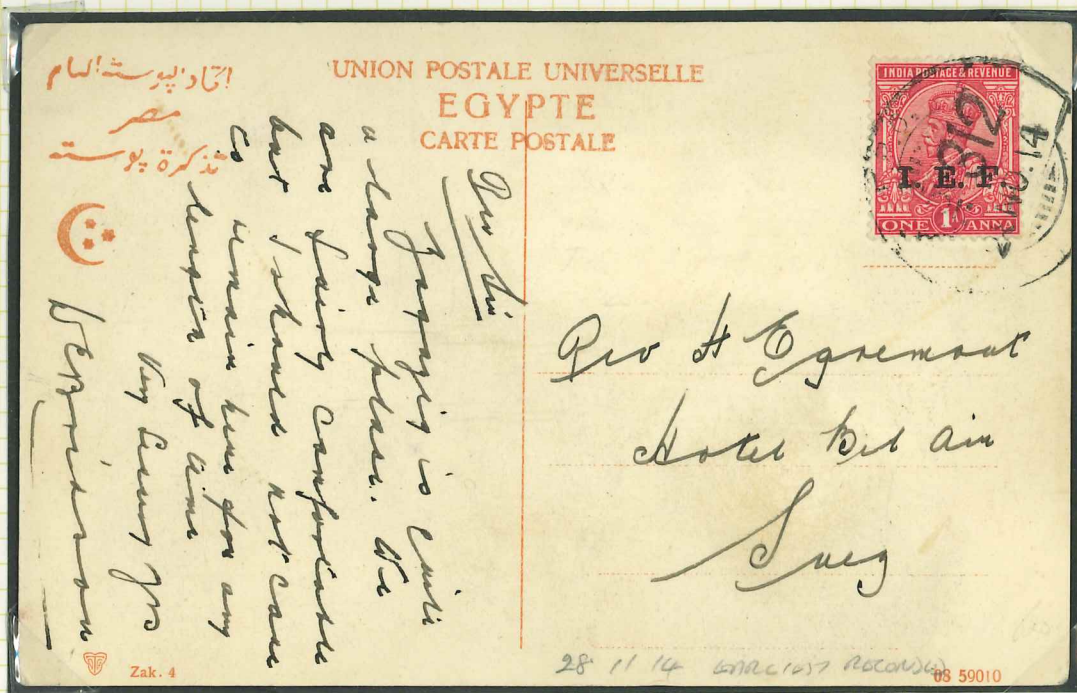 اتحاد البوسته العام
مصر
تذكرة بوسته
UNION POSTALE UNIVERSELLE
EGYPTE
CARTE POSTALE
INDIA POSTAGE & REVENUE
I. E. F.
ONE 1A ANNA
14
Dear Sir
Zagazig is quite
a large place. We
are fairly comfortable
but I should not care
to remain here for any
length of time
Very Truly Yrs
Rev H Egremont
Hotel Bel Air
Suez
Zak. 4
28 11 14 EARLIEST RECORDED
08 59010